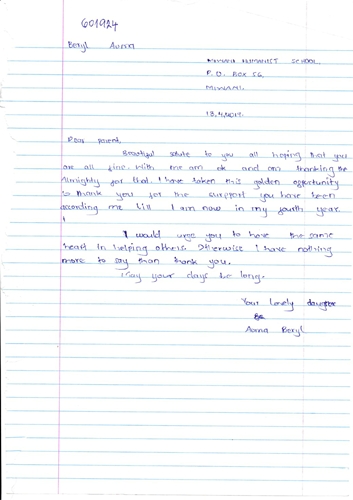 601924
Beryl Auma
HUMANIST SCHOOL,
P.O. BOX 56,
MIWANI.
13.4.2017.
Dear parent,
Beautiful salute to you all hoping that you
are all fine. With me am ok and am thanking the
Almighty for that. I have taken this golden opportunity
to thank you for the support you have been
according me till I am now in my fourth year.
I would urge you to have the same
heart in helping others. Otherwise I have nothing
more to say than thank you.
May your days be long.
Your lovely daughter
Be
Auma Beryl